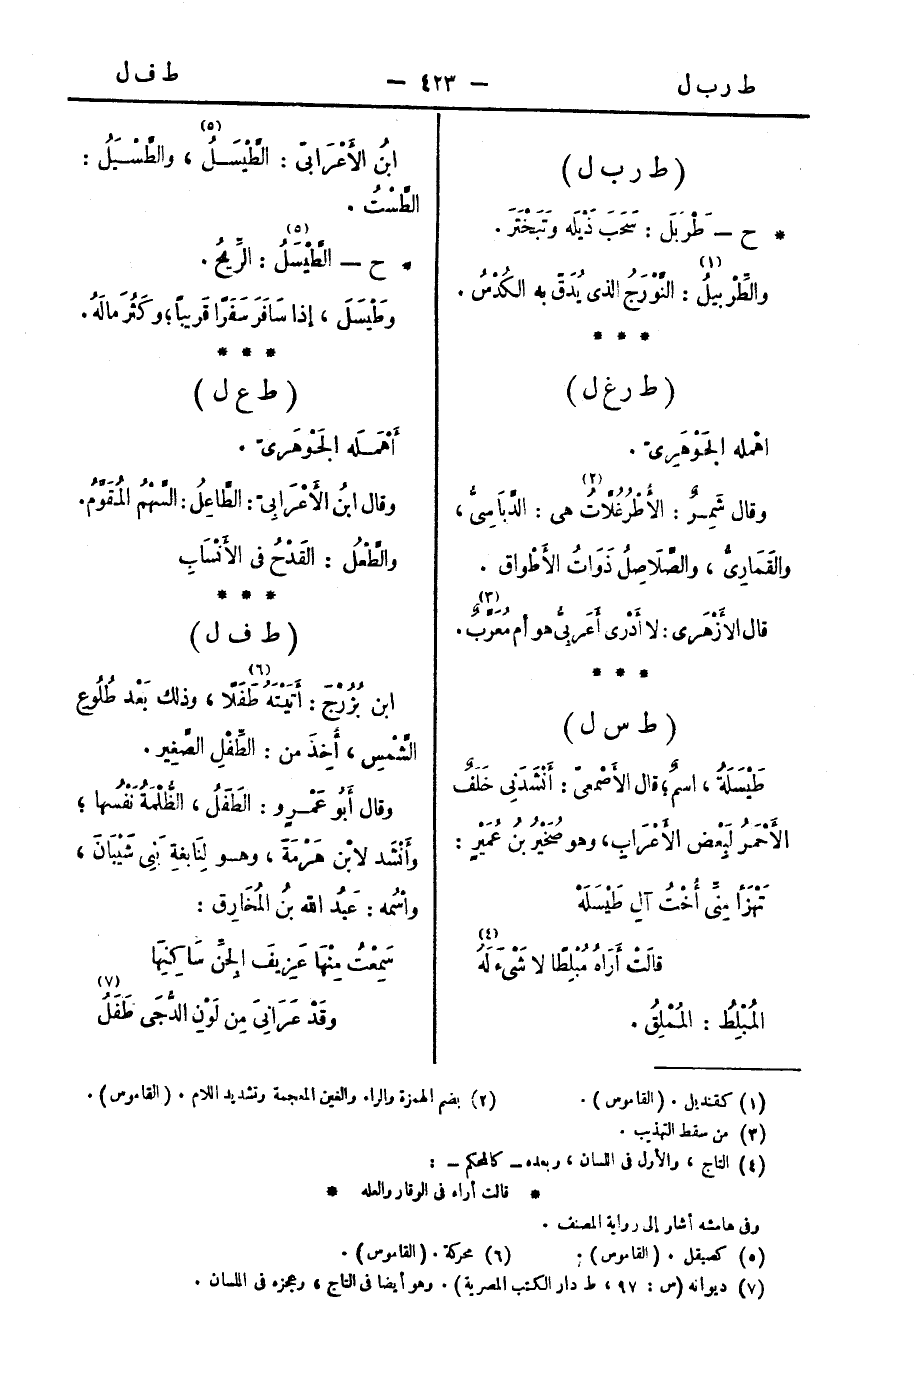 ط ر ب ل — ٤٢٣ — ط ف ل
(ط ر ب ل)
* ح — طَرْبَلَ : سَحَبَ ذَيْلَه وتَبَخْتَرَ .
والطِّرْبِيلُ (١) : النَّوْرَجُ الذى يُدَقّ به الكُدْسُ .
* * *
(ط ر غ ل)
اهْمله الجَوْهَرِىّ .
وقال شَمِرٌ : الأُطْرُغُلَّاتُ (٢) هى : الدَّبَاسِىُّ ،
والقَمَارِىُّ ، والصَّلَاصِلُ ذَوَاتُ الأَطْواق .
قال الأَزْهَرى : لا أَدْرى أَعَرَبِىٌّ هو أم مُعَرَّبٌ (٣) .
* * *
(ط س ل)
طَيْسَلَةُ ، اسمٌ ؛ قال الأَصْمعىّ : أَنْشَدَنى خَلَفٌ
الأَحْمَرُ لبَعْض الأَعْرَاب ، وهو صُخَيْرُ بنُ عُمَيْرٍ :
تَهْزَأُ مِنِّى أُخْتُ آلِ طَيْسَلَهْ
قالَتْ أَرَاهُ مُبْلِطًا لا شَىْءَ لَهْ (٤)
المُبْلِطُ : المُمْلِقُ .
ابنُ الأَعْرَابىّ : الطَّيْسَلُ (٥) ، والطَّسْيَلُ :
الطَّسْتُ .
* ح — الطَّيْسَلُ (٥) : الرِّيحُ .
وطَيْسَلَ ، إذا سَافَرَ سَفَرًا قَرِيباً ؛ وكَثُرَ مالُه .
* * *
(ط ع ل)
أَهْمَلَه الجَوْهَرىّ .
وقال ابنُ الأَعْرَابىّ : الطَّاعِلُ : السَّهْمُ المُقَوَّمُ .
والطَّعْلُ : القَدْحُ فى الأَنْسَابِ
* * *
(ط ف ل)
ابن بُزُرْجَ : أَتَيْتُهُ طَفَلًا (٦) ، وذلك بَعْد طُلُوعِ
الشَّمْسِ ، أُخِذَ من : الطِّفْلِ الصَّغِير .
وقال أَبُو عَمْرٍو : الطَفَلُ ، الظُّلْمَةُ نَفْسُها ؛
وأَنْشَد لابْن هَرْمَةَ ، وهو لِنَابغةِ بَنِى شَيْبَانَ ،
واسْمُه : عَبْدُ الله بنُ المُخَارِق :
سَمِعْتُ مِنْهَا عَزِيفَ الجِنِّ سَاكِنِهَا
وقَدْ عَرَانِىَ مِن لَوْنِ الدُّجَى طَفَلُ (٧)
(١) كقنديل . (القاموس) . (٢) بضم الهمزة والراء والغين المعجمة وتشديد اللام . (القاموس) .
(٣) من سقط التهذيب .
(٤) التاج ، والأول فى اللسان ، وبعده — كالمحكم — :
* قالت أراه فى الوقار والعله *
وفى هامشه أشار إلى رواية المصنف .
(٥) كصيقل . (القاموس) : (٦) محركة . (القاموس) .
(٧) ديوانه (س : ٩٧ ، ط دار الكتب المصرية) . وهو أيضا فى التاج ، وعجزه فى اللسان .